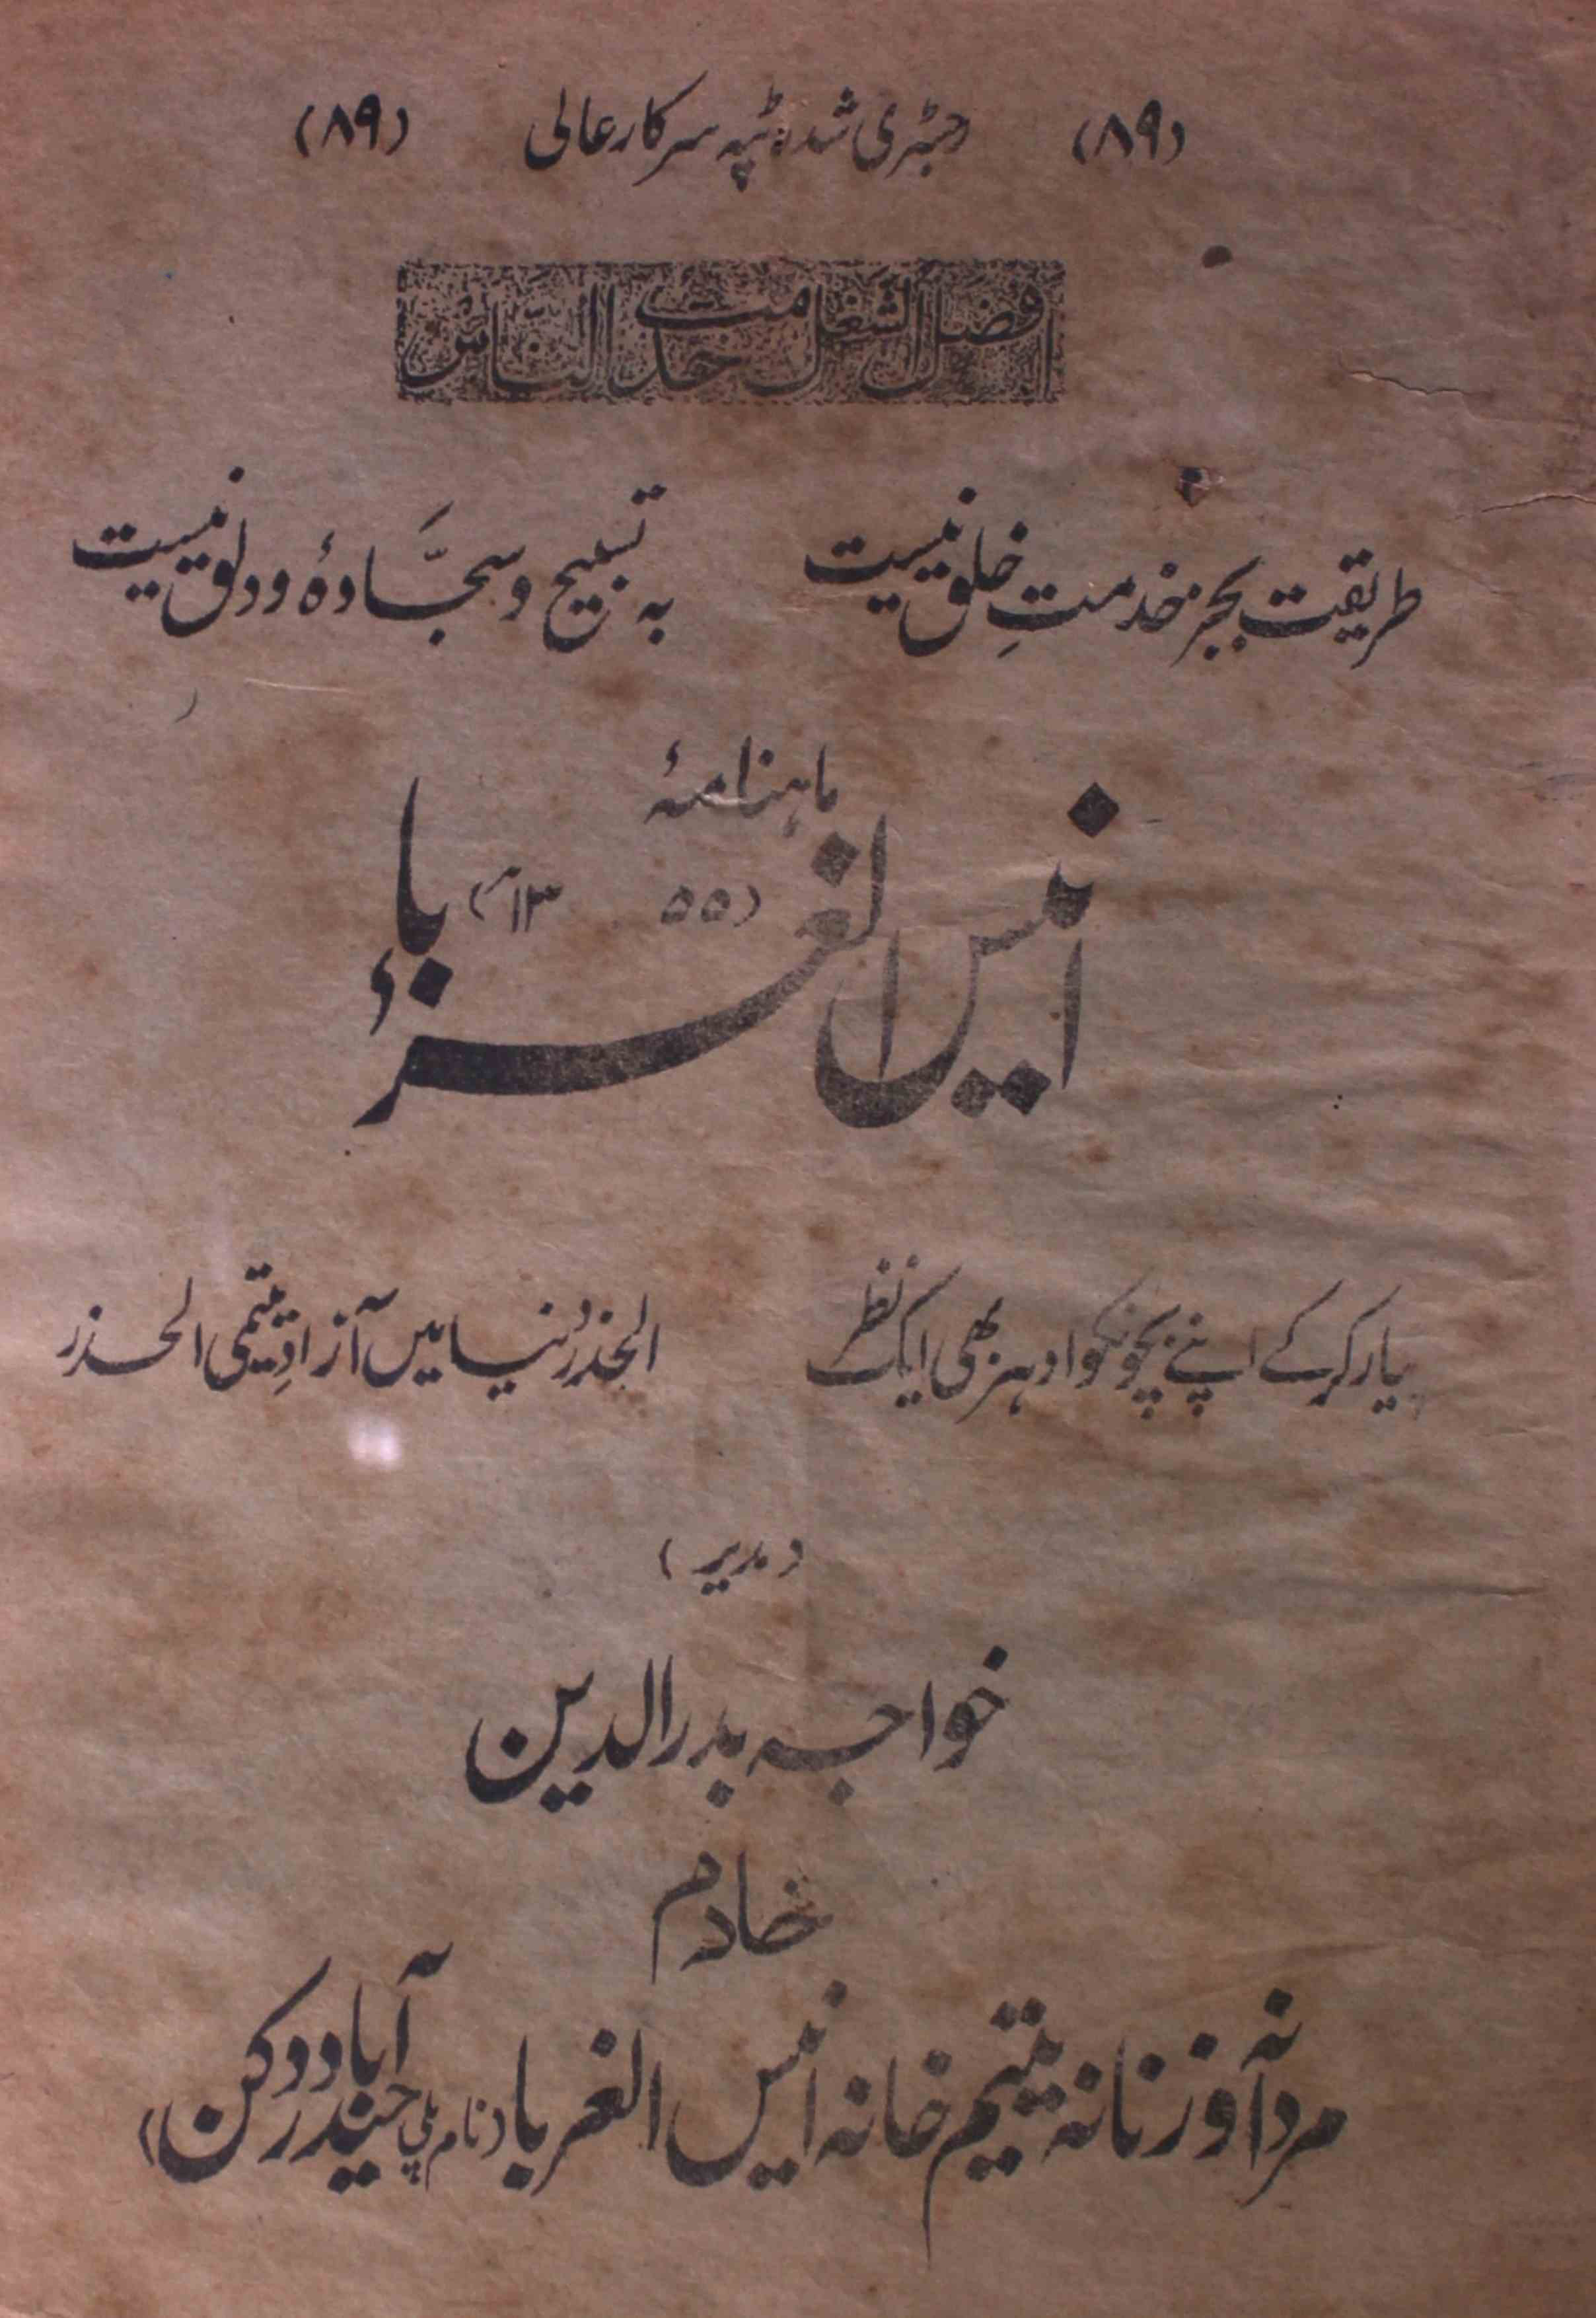 (۸۹) رجسٹری شدہ ٹپہ سرکار عالی (۸۹)
افضل الشغل خدمت الناس
طریقت بجز خدمتِ خلق نیست به تسبیح و سجّادۂ و دلق نیست
ماہنامۂ
انیس الغرباء
(۵۵ ۱۳)
پیار کرکے اپنے بچونکو ادہر بھی ایک نظر الحذر دُنیا میں آزادِ یتیمی الحذر
(مدیر)
خواجہ بدرالدین
خادم
مردانہ و زنانہ یتیم خانہ انیس الغربا (نام پلی حیدرآباد دکن)